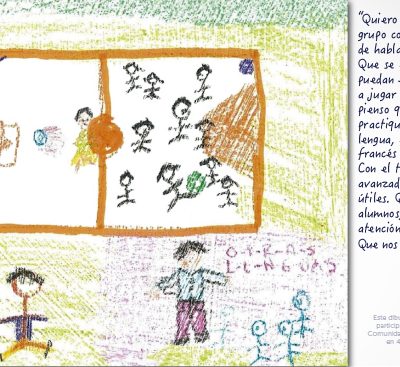 "Quiero
grupo co
de habla
Que se
puedan
a jugar
pienso q
practiqu
lengua,
francés
Con el t
avanzad
útiles. Q
alumnos,
atención
Que nos
OTRAS
LENGUAS
Este dibu
particip
Comunida
en 4